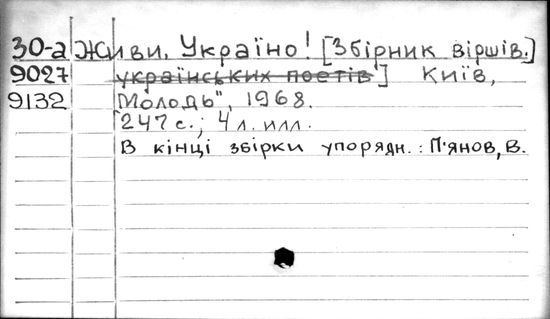 30-а Живи, Україно! [Збірник віршів.]
9027 українських поетів] Київ,
9132 "Молодь", 1968.
247 с.; 4 л. илл.
В кінці збірки упорядн.: П'янов, В.